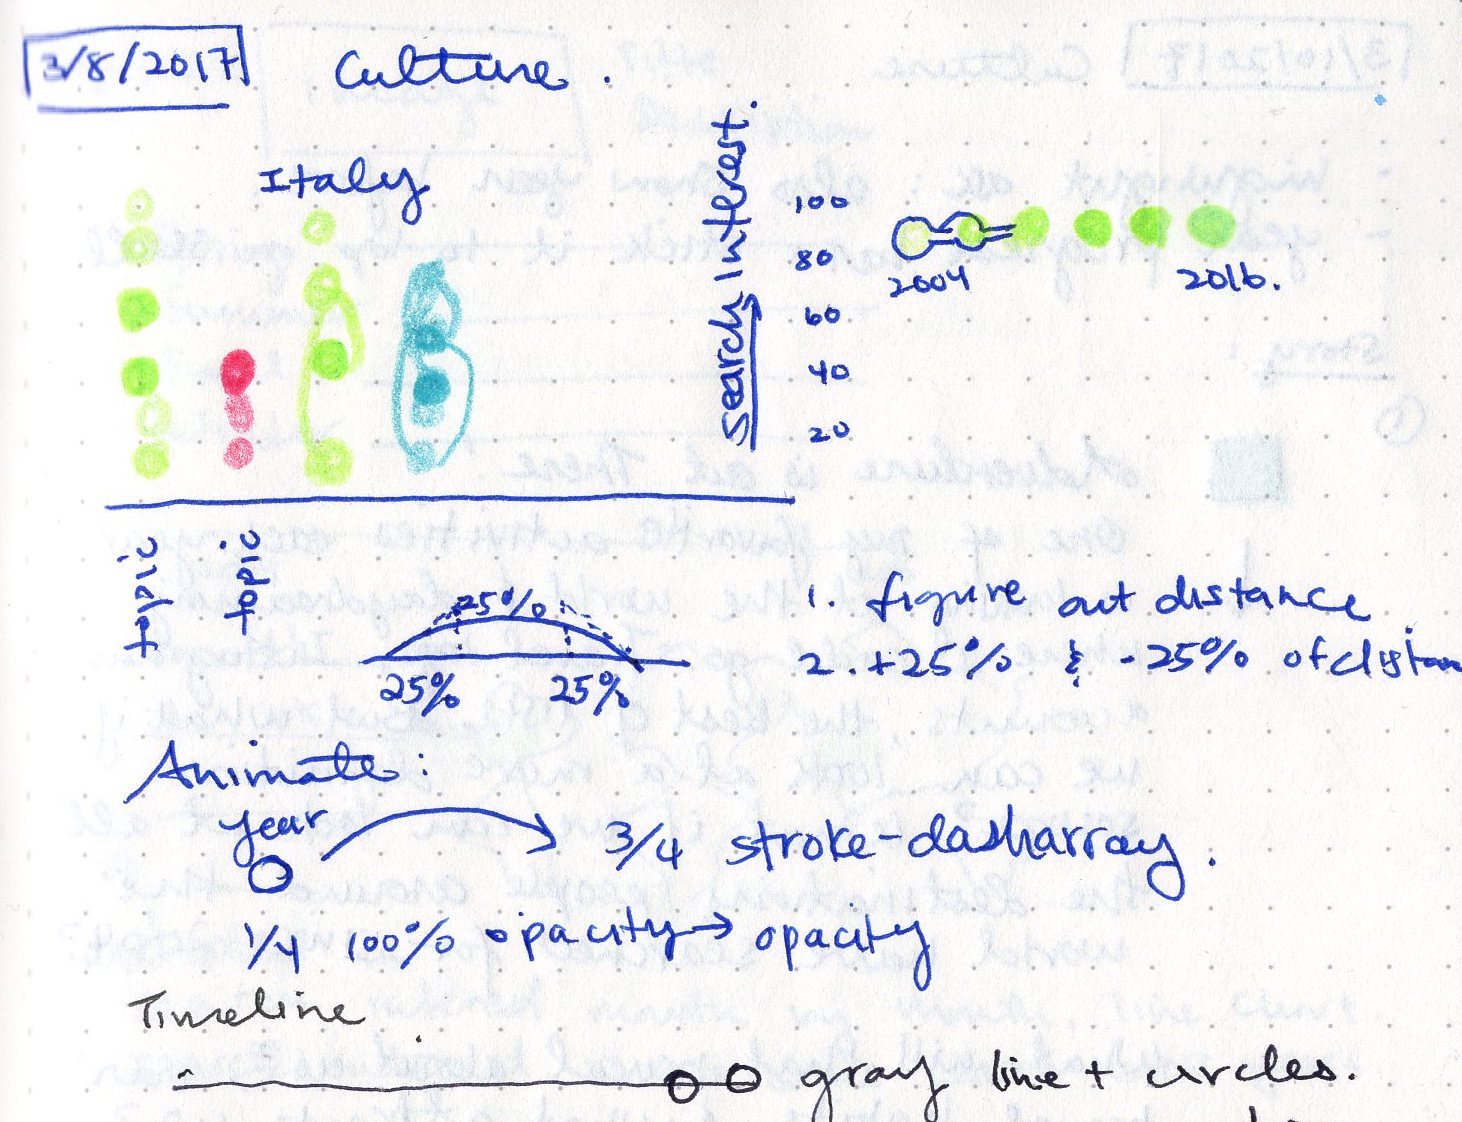 3/8/2017 Culture.
Italy
Search Interest.
100
80
60
40
20
2004 2016.
topic topic
25%
25% 25%
1. figure out distance
2. +25% & -25% of distan
Animate:
year
3/4 stroke-dasharray.
1/4 100% opacity → opacity
Timeline
gray line + circles.